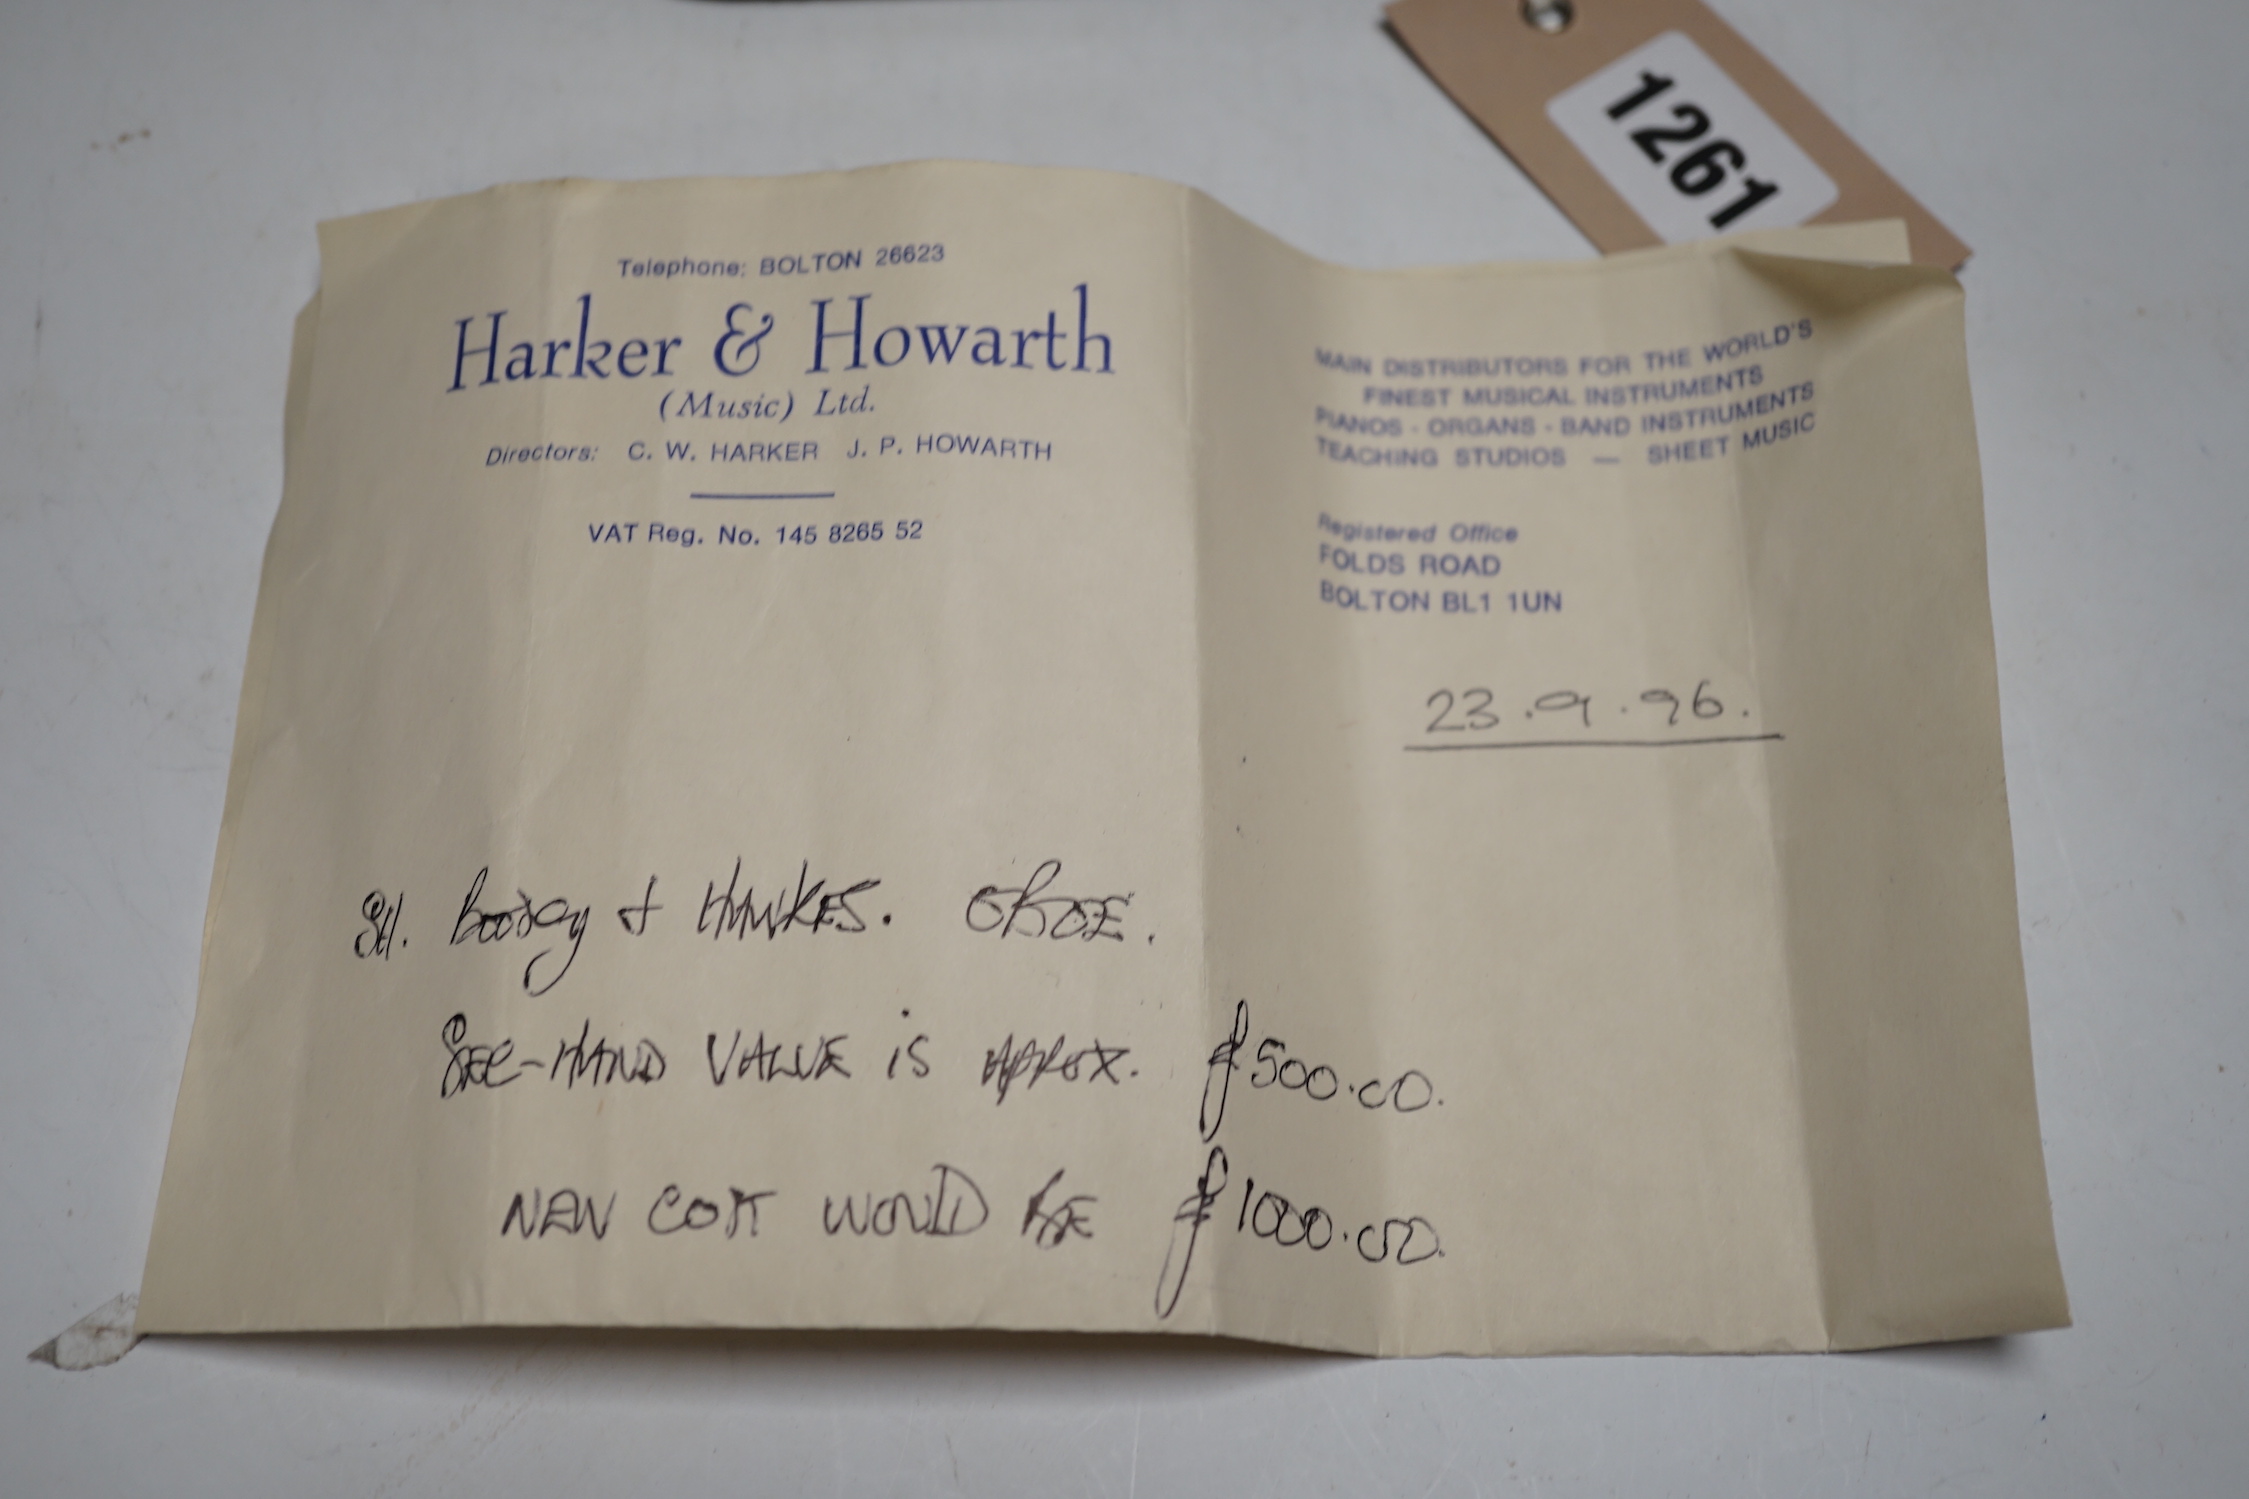 1261
Telephone: BOLTON 26623
Harker & Howarth
(Music) Ltd.
Directors: C. W. HARKER J. P. HOWARTH
VAT Reg. No. 145 8265 52
MAIN DISTRIBUTORS FOR THE WORLD'S
FINEST MUSICAL INSTRUMENTS
PIANOS - ORGANS - BAND INSTRUMENTS
TEACHING STUDIOS — SHEET MUSIC
Registered Office
FOLDS ROAD
BOLTON BL1 1UN
23.9.96.
Boosey & HAWKES. OBOE.
SEC-HAND VALUE is APROX. £500.00.
NEW COST WOULD BE £1000.00.